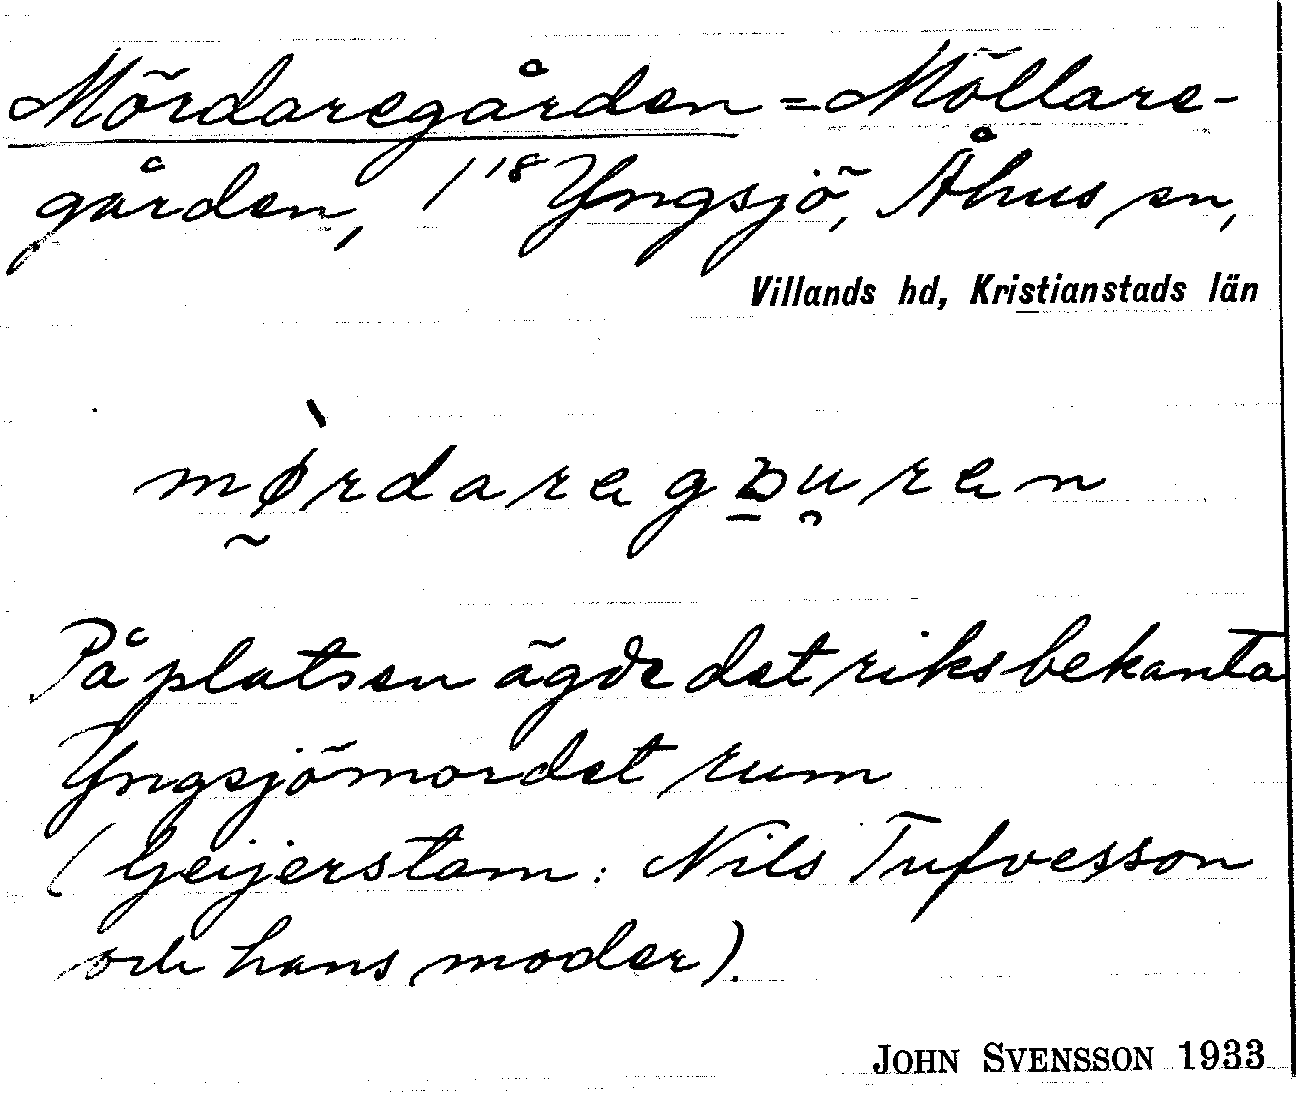 Mördaregården = Möllare-
gården, 1¹⁸ Yngsjö, Åhus sn,
Villands hd, Kristianstads län
mø̀rdarega gɒuren
På platsen ägde det riksbekanta
Yngsjömordet rum
(Geijerstam: Nils Tufvesson
och hans moder).
JOHN SVENSSON 1933